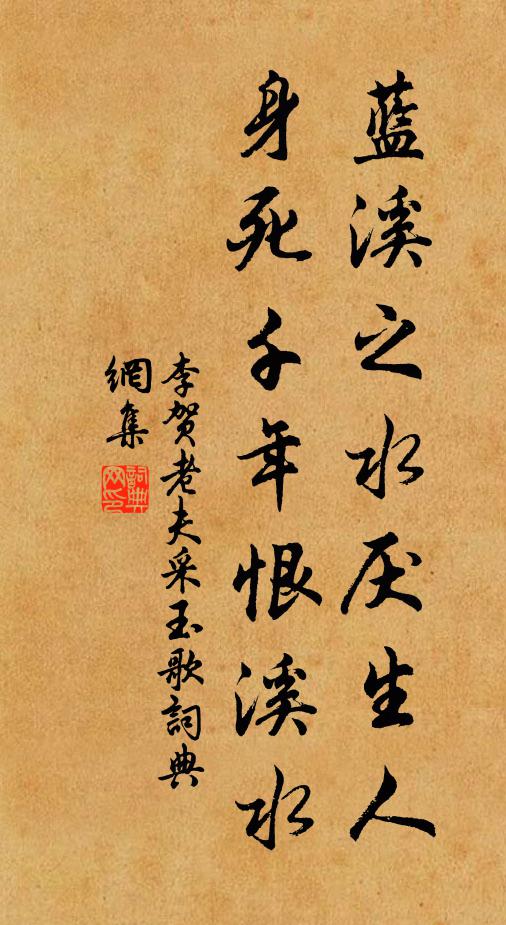 藍溪之水厌生人
身死千年恨溪水
李贺老夫采玉歌詞典
網集
詞典
网印